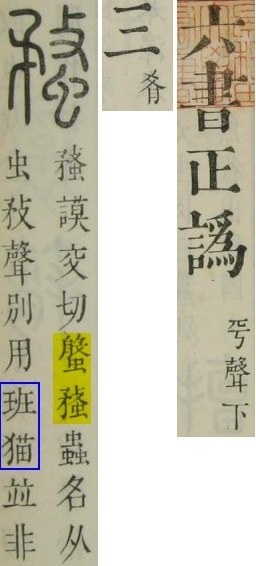 六書正譌
平聲下
三
肴
蝥
蝥謨交切螌蝥蟲名从
虫敄聲別用班猫並非